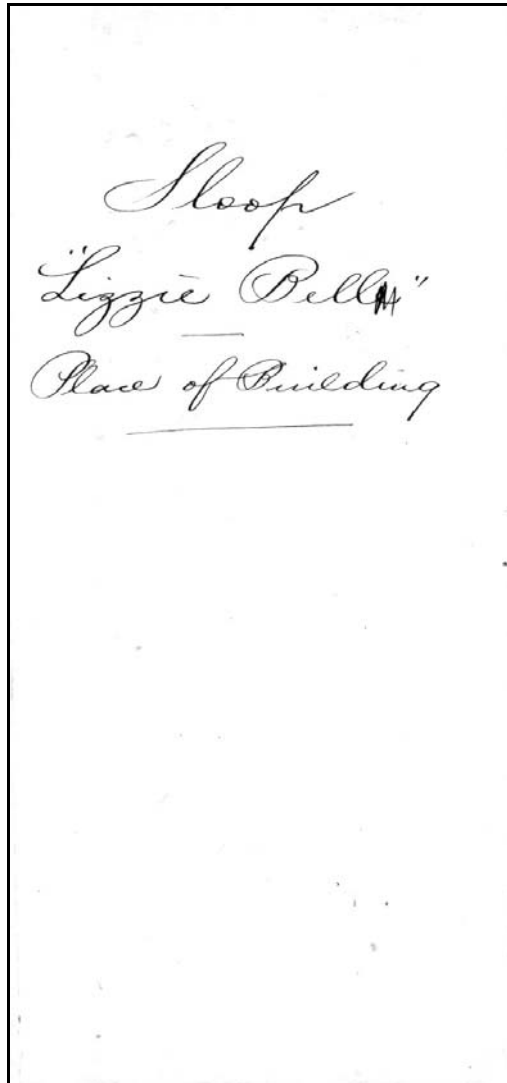 Sloop
"Lizzie Bell"
Place of Building